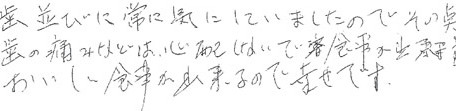 歯並びに常に気にしていましたのでその点
歯の痛みなどは、心配しないで落食事が出来
おいしい食事が出来るので幸せです。